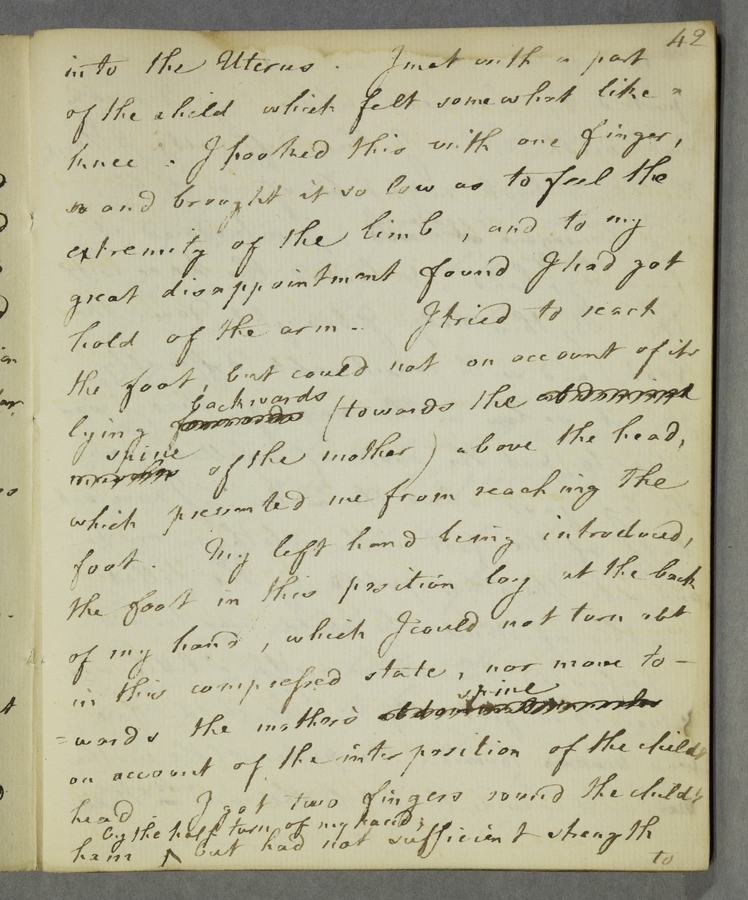 42
into the Uterus. I met with a part
of the child which felt somewhat like a
knee. I hooked this with one finger,
and brought it so low as to feel the
extremity of the limb, and to my
great disappointment found I had got
hold of the arm. I tried to reach
the foot, but could not on account of its
backwards
lying forwards (towards the
spine
of the mother) above the head,
which prevented me from reaching the
foot. My left hand being introduced,
the foot in this position lay at the back
of my hand, which I could not turn abt
in this compressed state, nor move to-
spine
=wards the mother's
on account of the interposition of the child's
head. I got two fingers round the child's
by the half turn of my hand;
ham ^ but had not sufficient strength
to